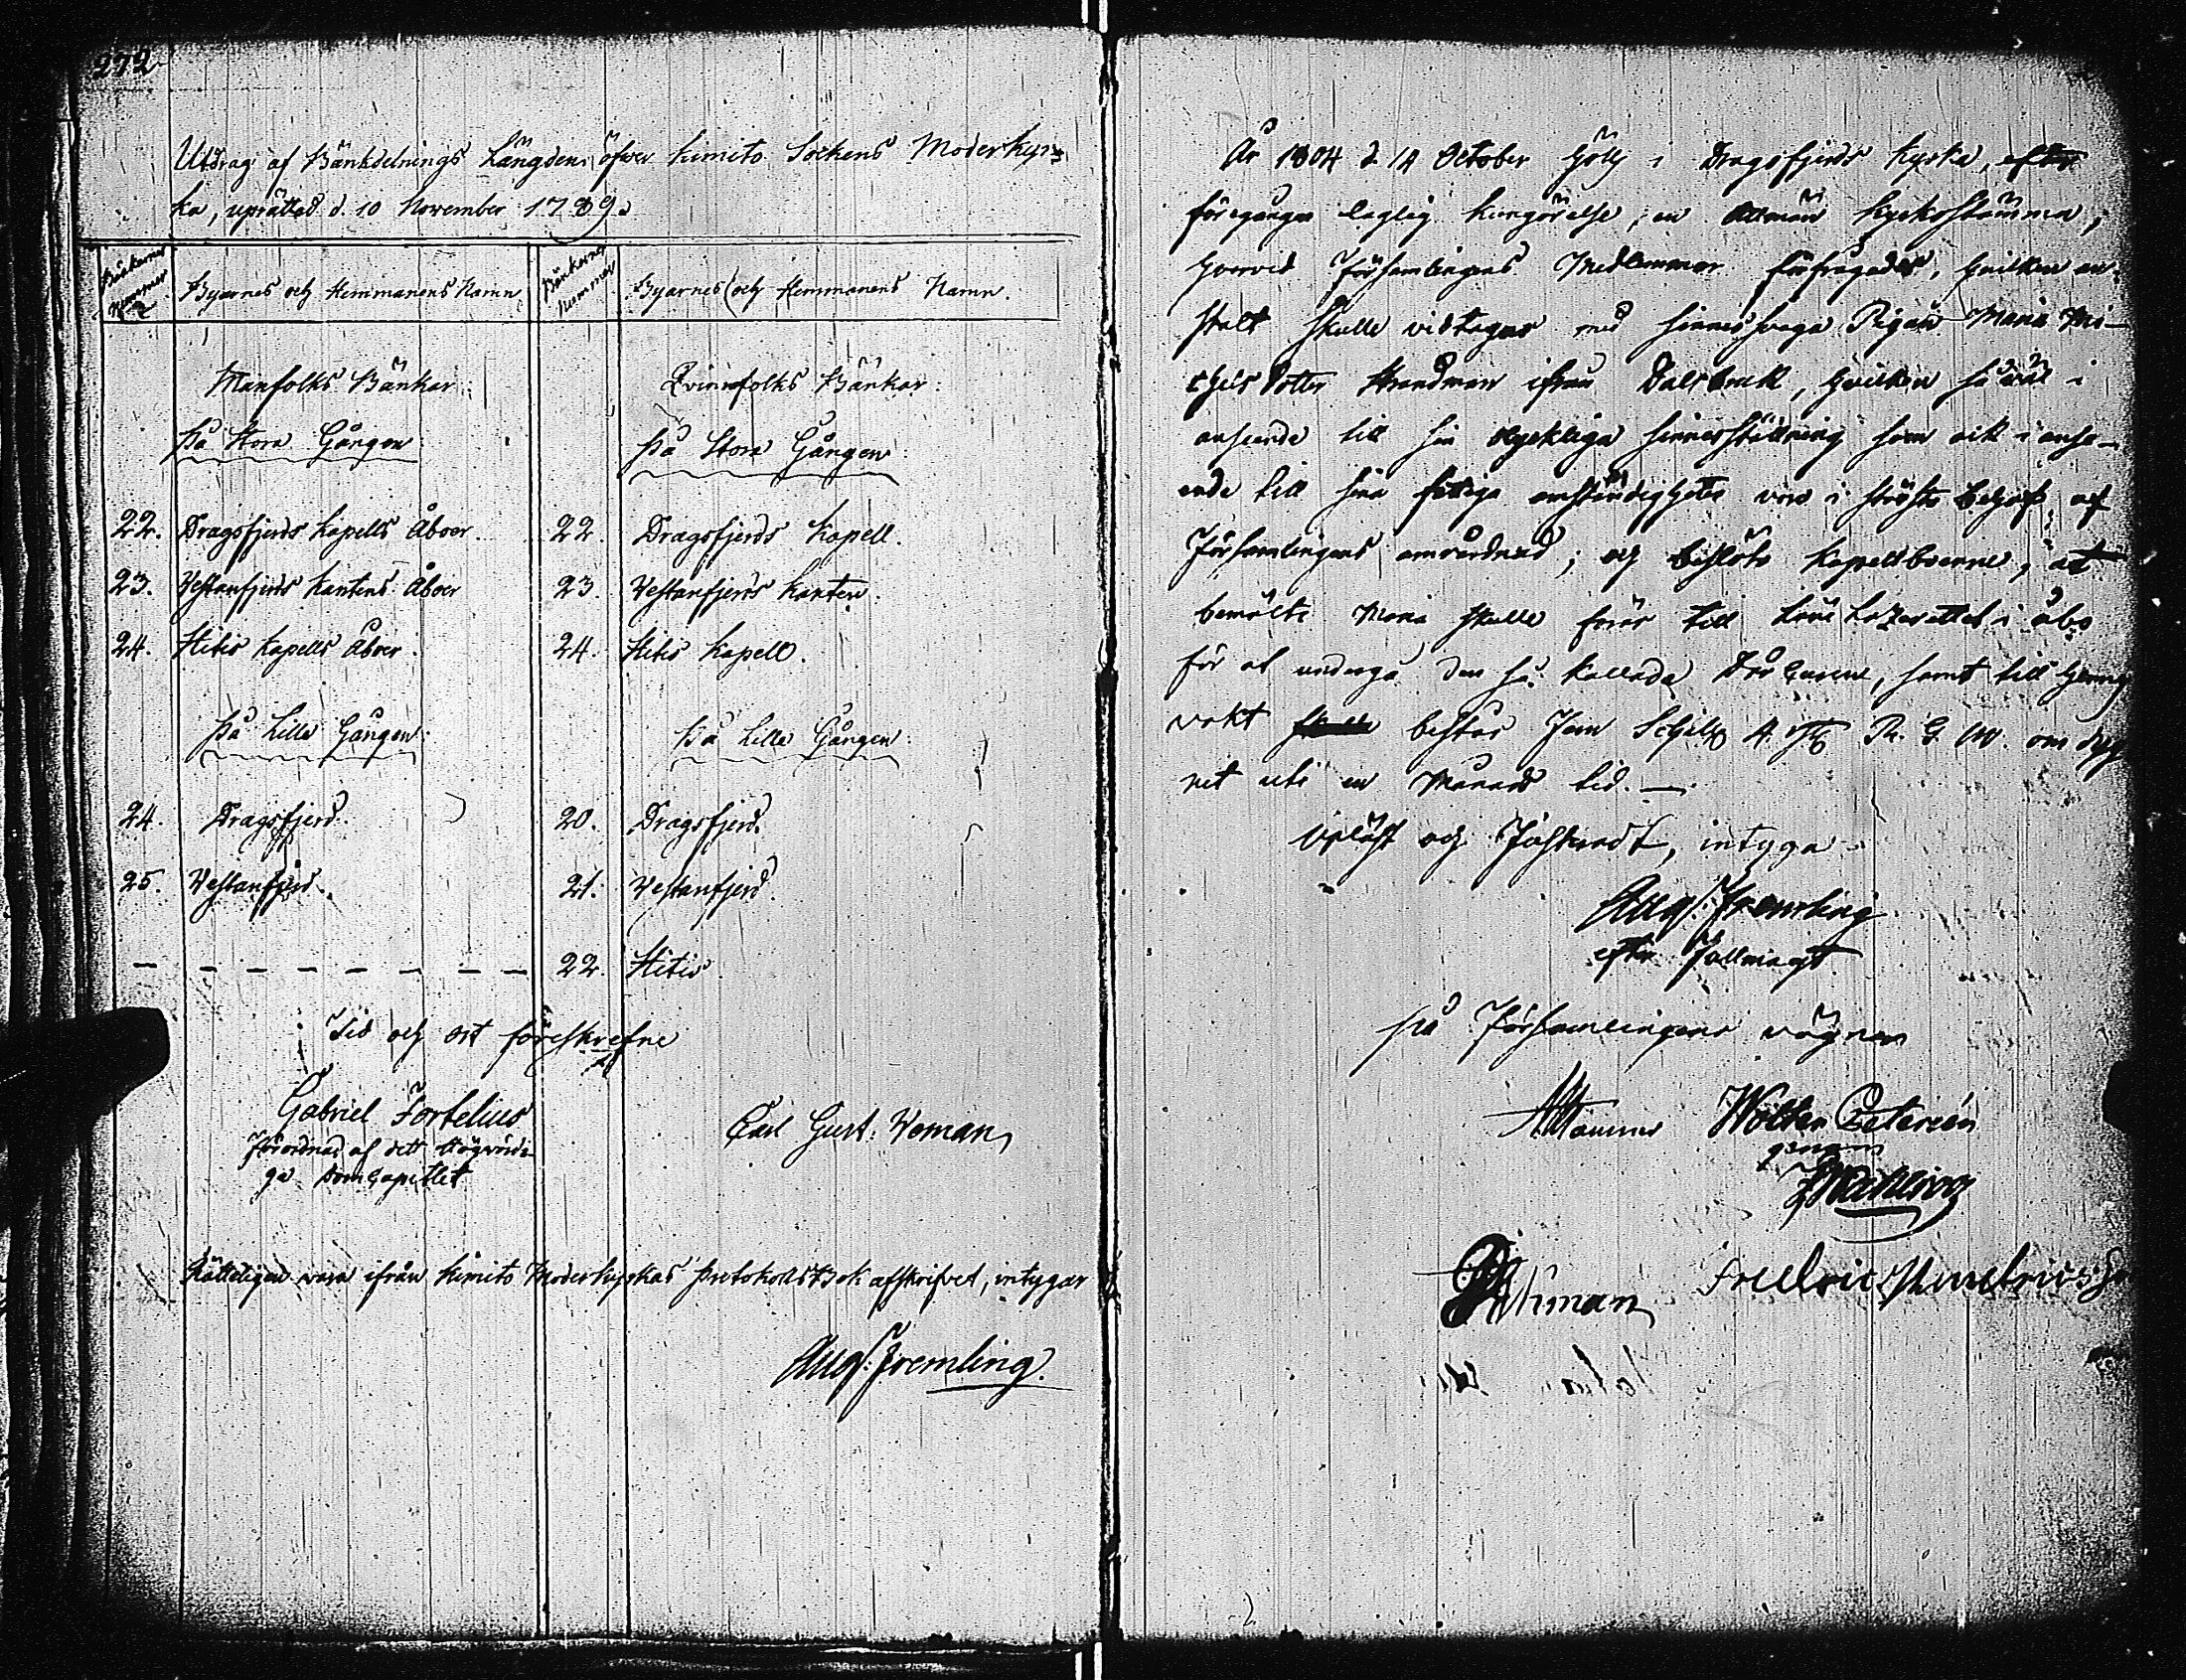 272.
Utdrag af Bänkdelnings Längden öfver Kimito Sockens Moderkyr=
ka, uprättad d. 10 November 1789.
Bänkarnes Nummer
Byarnes och Hemmanens Namn
Bänkarnes Nummer
Byarnes och Hemmanens Namn.
Manfolks Bänkar:
På Stora Gången
22. Dragsfjerds Kapells Åboer
23. Vestanfjerds Kantens Åboer
24. Hitis Kapells Åboer.
På Lilla Gången.
24. Dragsfjerd.
25. Vestanfjerd.
Qvinnfolks Bänkar:
På Stora Gången:
22. Dragsfjerds Kapell.
23. Vestanfjerds Kanten.
24. Hitis Kapell.
På Lilla Gången:
20. Dragsfjerd.
21. Vestanfjerd.
22. Hitis.
Tid och ort föreskrefne
Gabriel Fortelius
Förordnad af dett Högvördi-
ga Domcapitlet
Carl Gust: Veman
Rätteligen vara ifrån Kimito Moderkyrkas ProtokollsBok afskrifvet, intygar
Aug: Fremling.
År 1804 d. 14 October hölts i Dragsfjerds Kyrka, efter
föregången laglig kungörelse, en Allmän Kyrkostämma,
hvarvid Församlingens Medlemmar förfrågades, hvilken an-
stalt skulle vidtagas med sinnessvaga Pigan Maria Mi-
chels Dotter Strandman ifrån Dalsbruk, hvilken så väl i
anseende till sin olyckliga sinnesställning som ock i anse-
ende till sina fattiga omständigheter vore i största behof af
Församlingens omvårdnad; och beslöts Kapellboerne, at
bemälte Maria skulle föras till Läns Lazarettet i Åbo
för at undergå den så kallade Dår Curen, samt till hennes
vakt bestås Fem Schill. R. G. om dyg
net uti en Månads tid. —
Upläst och Justeradt, intyga
Aug: Fremling
efter Fullmagt
på Församlingens vägnar
Wolter Petersén
genom
Öhman
Fredric